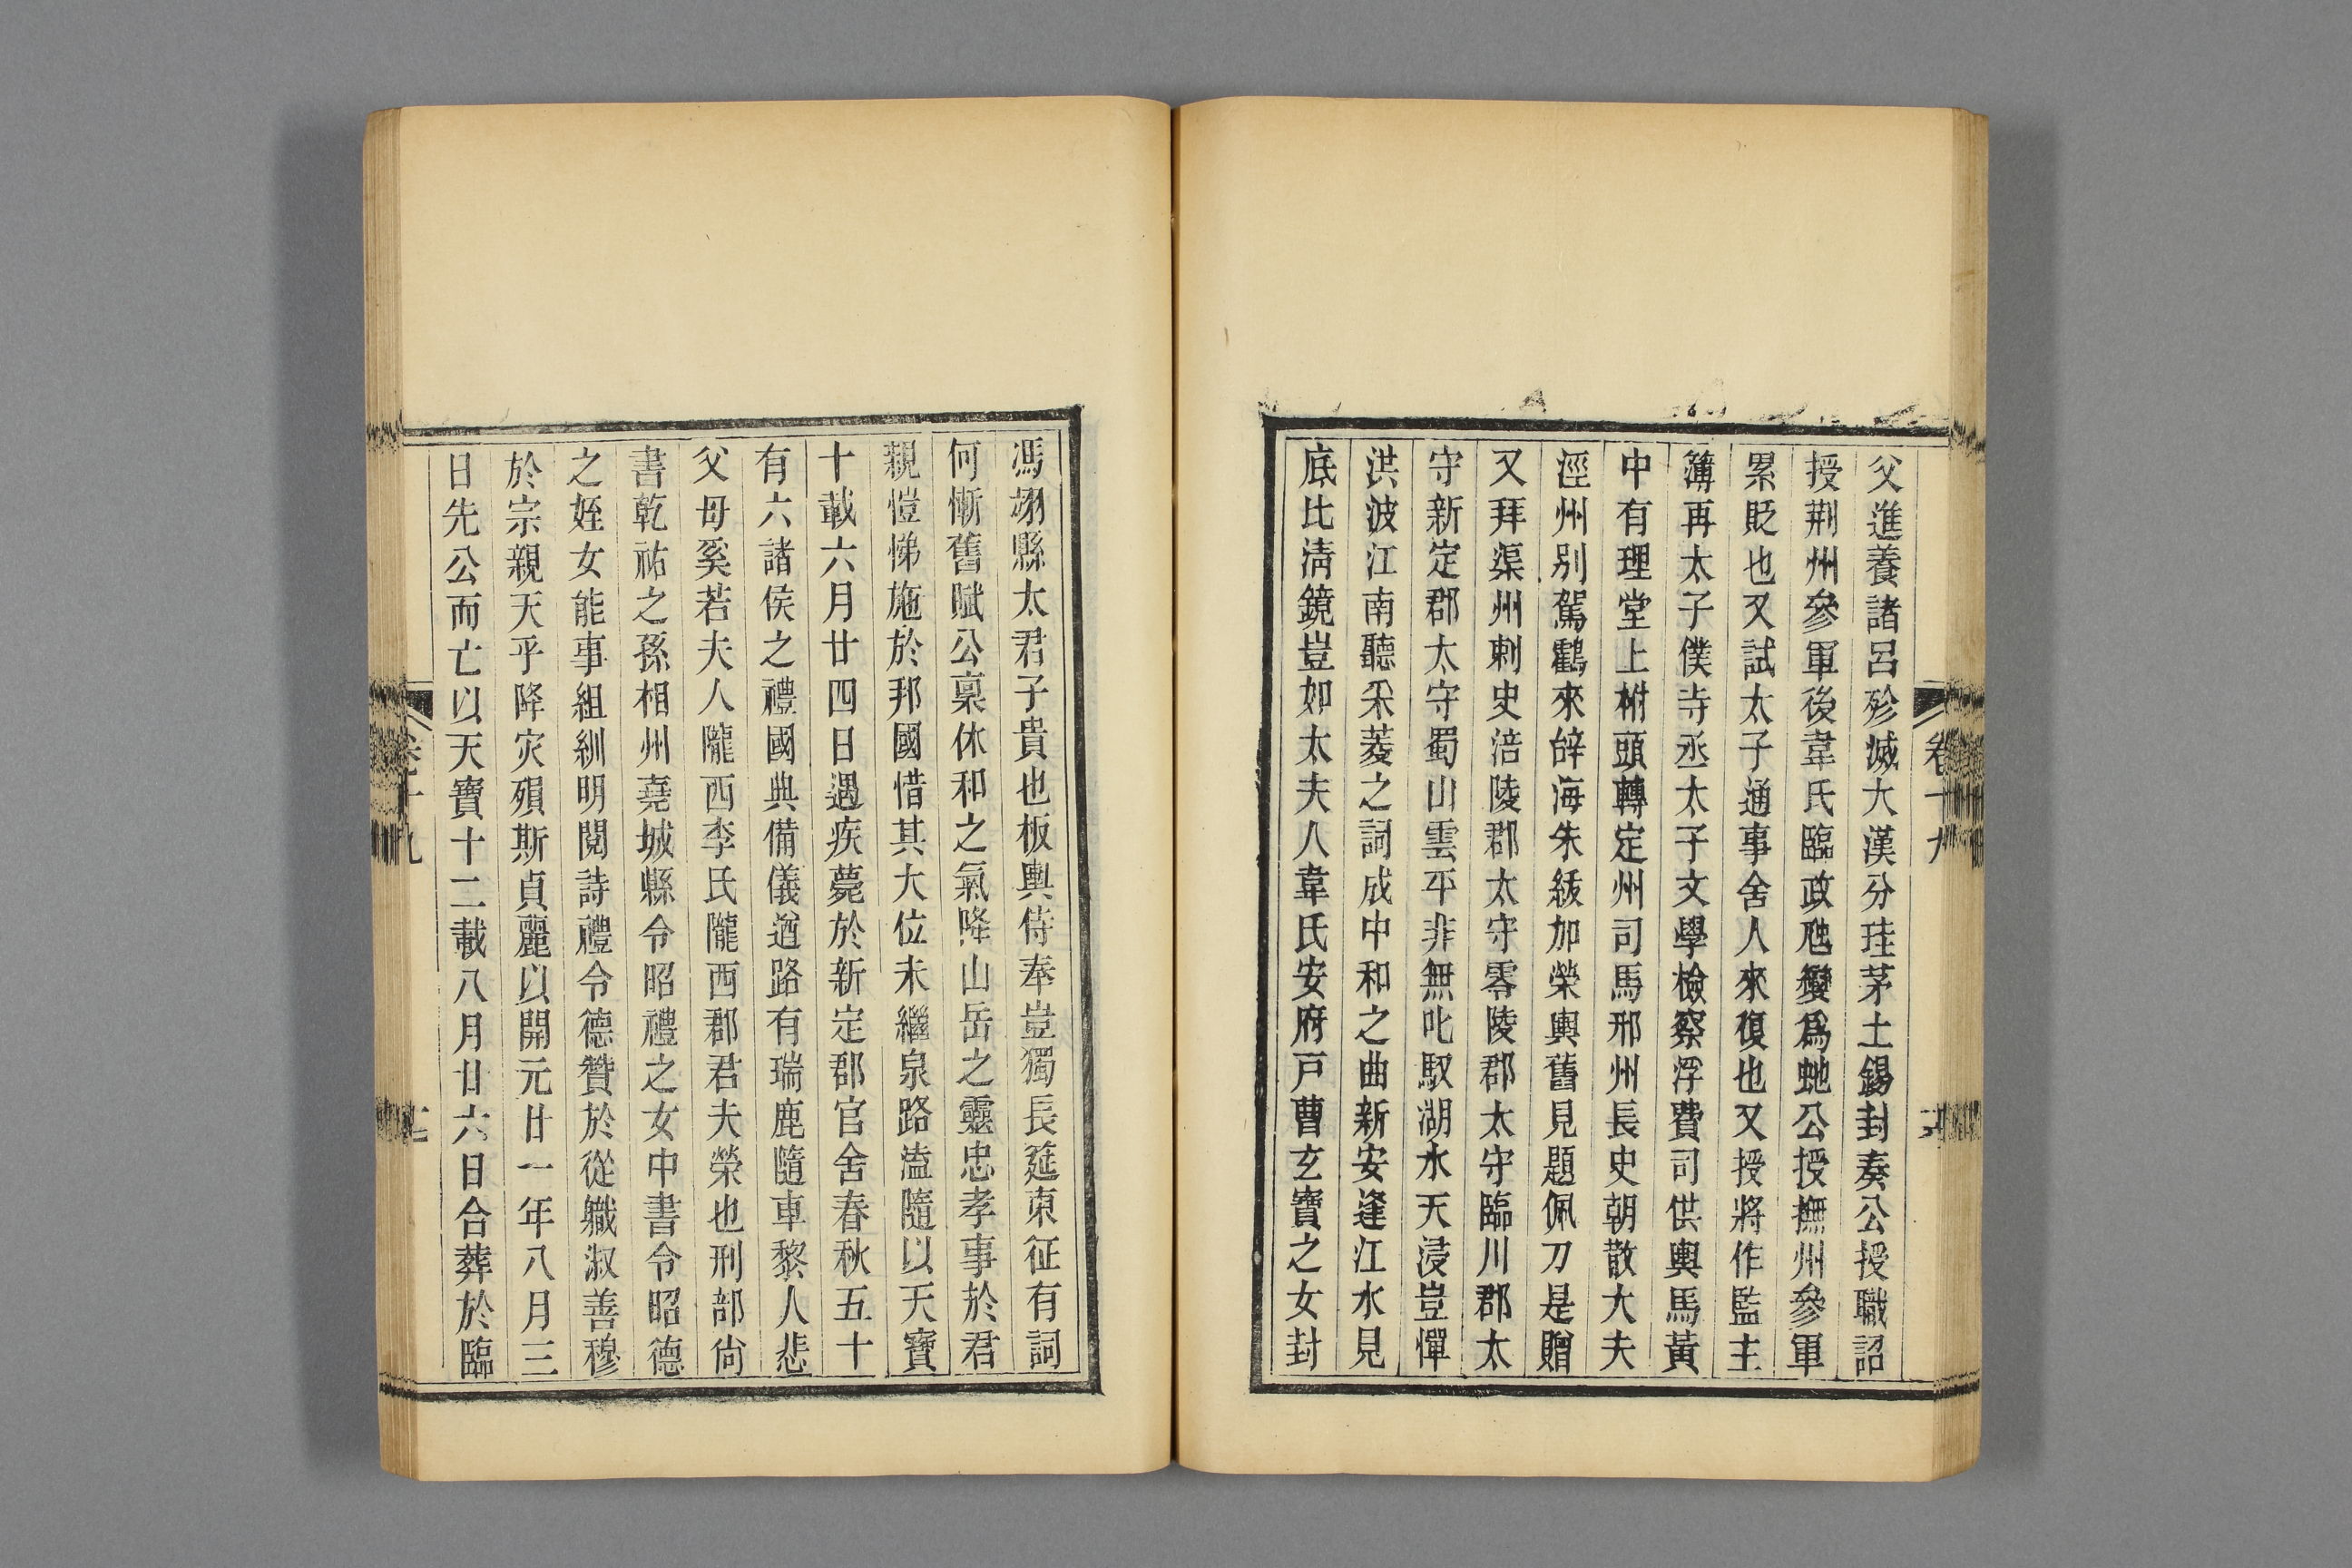 父進養諸呂殄滅大漢分珪茅土錫封奏公授職詔
授荆州參軍後韋氏臨政虺變爲虵公授撫州參軍
累貶也又試太子通事舍人來復也又授將作監主
簿再太子僕寺丞太子文學檢察浮費司供輿馬黃
中有理堂上柎頭轉定州司馬邢州長史朝散大夫
涇州別駕鸛來辤海朱紱加榮輿舊見題佩刀是贈
又拜渠州刺史涪陵郡太守零陵郡太守臨川郡太
守新定郡太守蜀山雲平非無叱馭湖水天浸豈憚
洪波江南聽采菱之詞成中和之曲新安逢江水見
底比淸鏡豈如太夫人韋氏安府戸曹玄寶之女封
卷十九
馮翊縣太君子貴也板輿侍奉豈獨長筵東征有詞
何慚舊賦公稟休和之氣降山岳之靈忠孝事於君
親愷悌施於邦國惜其大位未繼泉路溘隨以天寶
十載六月廿四日遇疾薨於新定郡官舍春秋五十
有六諸侯之禮國典備儀遒路有瑞鹿隨車黎人悲
父母奚若夫人隴西李氏隴西郡君夫榮也刑部尙
書乾祐之孫相州堯城縣令昭禮之女中書令昭德
之姪女能事組紃明閱詩禮令德贊於從軄淑善穆
於宗親天乎降灾殞斯貞麗以開元廿一年八月三
日先公而亡以天寶十二載八月廿六日合葬於臨
卷十九